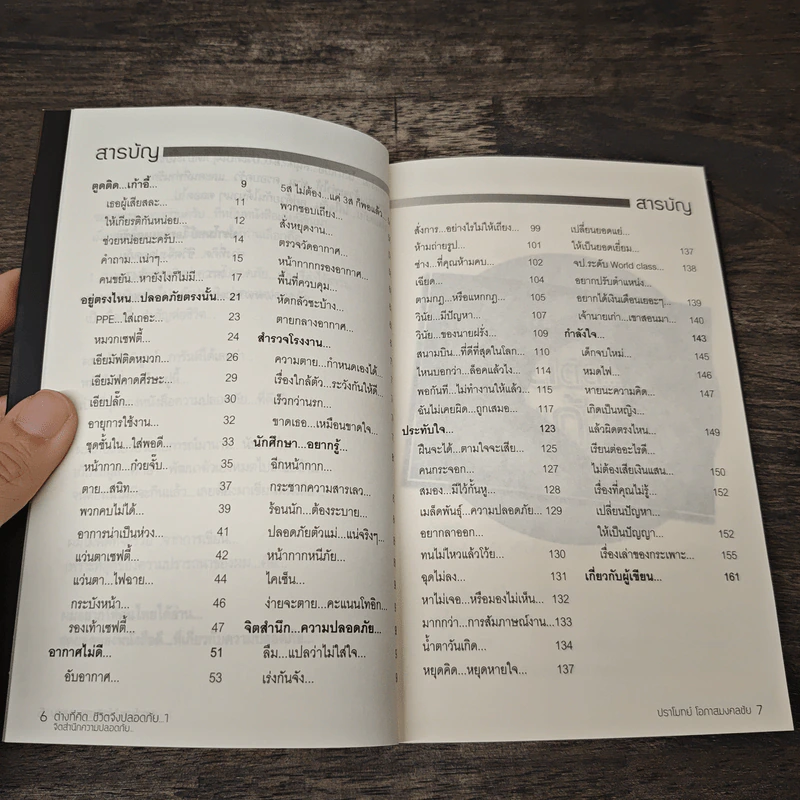 สารบัญ
ตูดติด...เก้าอี้... 9
เธอผู้เสียสละ... 11
ให้เกียรติกันหน่อย... 12
ช่วยหน่อยนะครับ... 14
คำถาม...เน่าๆ... 15
คนขยัน...หายังไงก็ไม่มี... 17
อยู่ตรงไหน...ปลอดภัยตรงนั้น... 21
PPE...ใส่เถอะ... 23
หมวกเซฟตี้... 24
เอียมัฟติดหมวก... 26
เอียมัฟคาดศีรษะ... 29
เอียปลั๊ก... 30
อายุการใช้งาน... 32
ชุดชั้นใน...ใส่พอดี... 33
หน้ากาก...ก๋วยจั๊บ... 35
ตาย...สนิท... 37
พวกคบไม่ได้... 39
อาการน่าเป็นห่วง... 41
แว่นตาเซฟตี้... 42
แว่นตา...ไฟฉาย... 44
กระบังหน้า... 46
รองเท้าเซฟตี้... 47
อากาศไม่ดี... 51
อับอากาศ... 53
5ส ไม่ต้อง...แค่ 3ส ก็พอแล้ว
พวกชอบเถียง...
สั่งหยุดงาน...
ตรวจวัดอากาศ...
หน้ากากกรองอากาศ...
พื้นที่ควบคุม...
หัดกลัวซะบ้าง...
ตายกลางอากาศ...
สำรวจโรงงาน...
ความตาย...กำหนดเองได้...
เรื่องใกล้ตัว...ระวังกันให้ดี...
เร็วกว่านรก...
ขาดเธอ...เหมือนขาดใจ...
นักศึกษา...อยากรู้...
ฉีกหน้ากาก...
กระชากความสารเลว...
ร้อนนัก...ต้องระบาย...
ปลอดภัยตัวแม่...แน่จริงๆ...
หน้ากากหนีภัย...
ไคเซ็น...
ง่ายจะตาย...คะแนนโทอิก...
จิตสำนึก...ความปลอดภัย...
ลืม...แปลว่าไม่ใส่ใจ...
เร่งกันจัง...
6 ต่างที่คิด...ชีวิตจึงปลอดภัย...1
จิตสำนึกความปลอดภัย...
สารบัญ
สั่งการ...อย่างไรไม่ให้เถียง... 99
ห้ามถ่ายรูป... 101
ช่าง...ที่คุณห้ามคบ... 102
เฉียด... 104
ตามกฎ...หรือแหกกฎ... 105
วินัย...มีปัญหา... 107
วินัย...ของนายฝรั่ง... 109
สนามบิน...ที่ดีที่สุดในโลก... 110
ไหนบอกว่า...ล็อคแล้วไง... 114
พอกันที...ไม่ทำงานให้แล้ว... 115
ฉันไม่เคยผิด...ถูกเสมอ... 117
ประทับใจ... 123
ฝืนจะได้...ตามใจจะเสีย... 125
คนกระจอก... 127
สมอง...มีไว้กั้นหู... 128
เมล็ดพันธุ์...ความปลอดภัย... 129
อยากลาออก...
ทนไม่ไหวแล้วโว้ย... 130
ฉุดไม่ลง... 131
หาไม่เจอ...หรือมองไม่เห็น... 132
มากกว่า...การสัมภาษณ์งาน... 133
น้ำตาวันเกิด... 134
หยุดคิด...หยุดหายใจ... 137
เปลี่ยนยอดแย่...
ให้เป็นยอดเยี่ยม... 137
จป.ระดับ World class... 138
อยากปรับตำแหน่ง...
อยากได้เงินเดือนเยอะๆ... 139
เจ้านายเก่า...เขาสอนมา... 140
กำลังใจ... 143
เด็กจบใหม่... 145
หมดไฟ... 146
หายนะความคิด... 147
เกิดเป็นหญิง...
แล้วผิดตรงไหน... 149
เรียนต่ออะไรดี...
ไม่ต้องเสียเงินแสน... 150
เรื่องที่คุณไม่รู้... 152
เปลี่ยนปัญหา...
ให้เป็นปัญญา... 152
เรื่องเล่าของกระเพาะ... 155
เกี่ยวกับผู้เขียน... 161
ปราโมทย์ โอภาสมงคลชัย 7